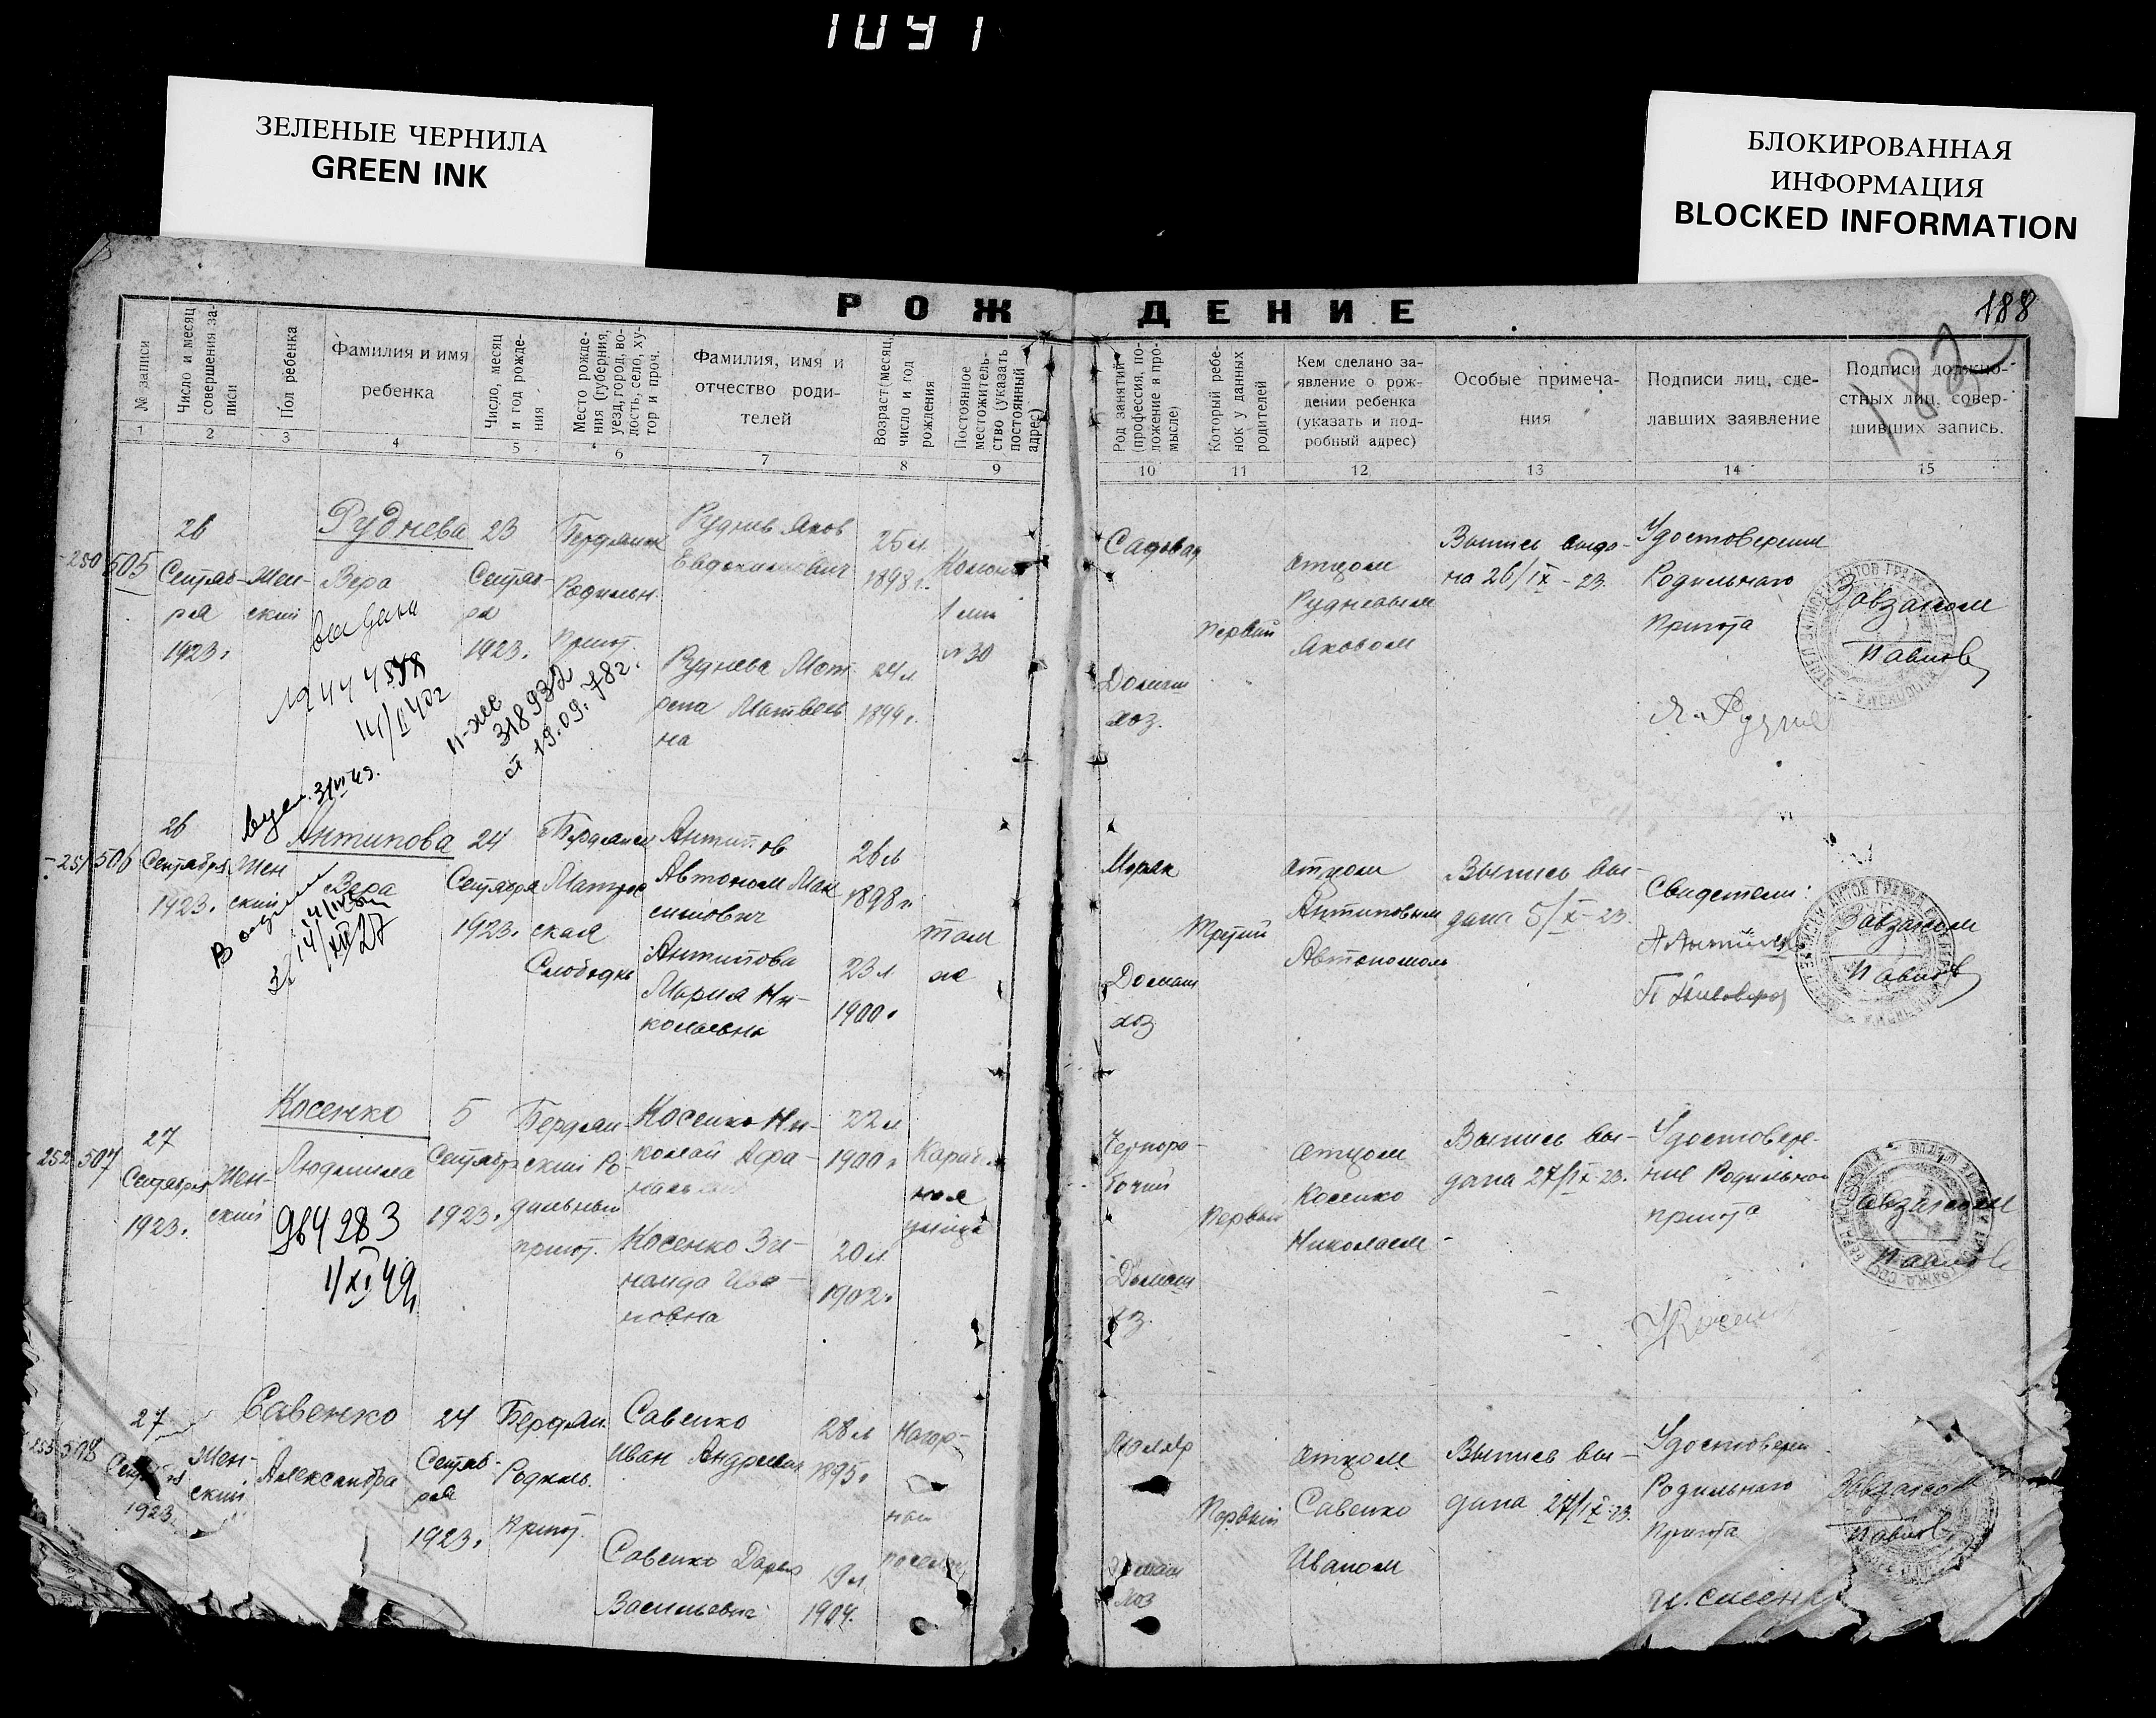 1091
ЗЕЛЕНЫЕ ЧЕРНИЛА
GREEN INK
БЛОКИРОВАННАЯ
ИНФОРМАЦИЯ
BLOCKED INFORMATION
РОЖДЕНИЕ
188
182
№ записи
Число и месяц совершения записи
Пол ребенка
Фамилия и имя ребенка
Число, месяц и год рождения
Место рождения (губерния, уезд, город, волость, село, хутор и проч.
Фамилия, имя и отчество родителей
Возраст (месяц, число и год рождения
Постоянное местожительство (указать постоянный адрес)
Род занятий (профессия, положение в промысле)
Который ребенок у данных родителей
Кем сделано заявление о рождении ребенка (указать и подробный адрес)
Особые примечания
Подписи лиц, сделавших заявление
Подписи должностных лиц, совершивших запись.
1 2 3 4 5 6 7 8 9 10 11 12 13 14 15
250 505
26
Сентября
1923.
Женский
Руднева
Вера
23
Сентября
1923.
Родильн.
Приют.
Руднев Яков
Евдокимович
25 л.
1898 г.
Руднева Мот
рена Матвеев
на
24 л.
1899 г.
№ 30
318932
19.09.78г.
Домаш
хоз.
Первый
отцом
Рудневым
Яковом
Выпись выда-
на 26/IX-23.
Удостоверение
Родильного
Приюта
Завзагсом
Павлов
251 506
26
Сентября
1923.
Женский
Антипова
Вера
24
Сентября
1923.
Слободка
Антипов
Автоном Мак
симович
26 л
1898 г.
Антипова
Мария Ни-
колаевна
23 л
1900.
там
же
Моряк
Домаш
хоз
Третий
отцом
Антиповым
Автономом
Выпись вы-
дана 5/X-23.
Свидетели:
Завзагсом
Павлов
252 507
27
Сентября
1923.
Женский
Косенко
Людмила
964283
1/XI 49
5
Сентября
1923.
Бердян-
ский Ро-
дильный
приют.
Косенко Ни-
колай Афа-
22 л
1900 г
Косенко Зи-
наида Ива-
новна
20 л.
1902.
улица
Чернора-
бочий
Домаш
хоз.
Первый
отцом
Косенко
Николаем
Выпись вы-
дана 27/IX-23.
Удостовере-
ние Родильного
приюта
Завзагсом
Павлов
508
27
Сентября
1923.
Женский
Савенко
Александра
24
Сентяб-
ря
1923.
Бердян.
Родиль.
Приют.
Савенко
Иван Андреевич
28 л
1895.
Савенко Дарья
Васильевна
19 л.
1904.
Нагор-
Столяр
хоз
Первый
отцом
Савенко
Иваном
Выпись вы-
дана 27/IX-23.
Удостоверен
Родильного
Приюта
Завзагсом
Павлов